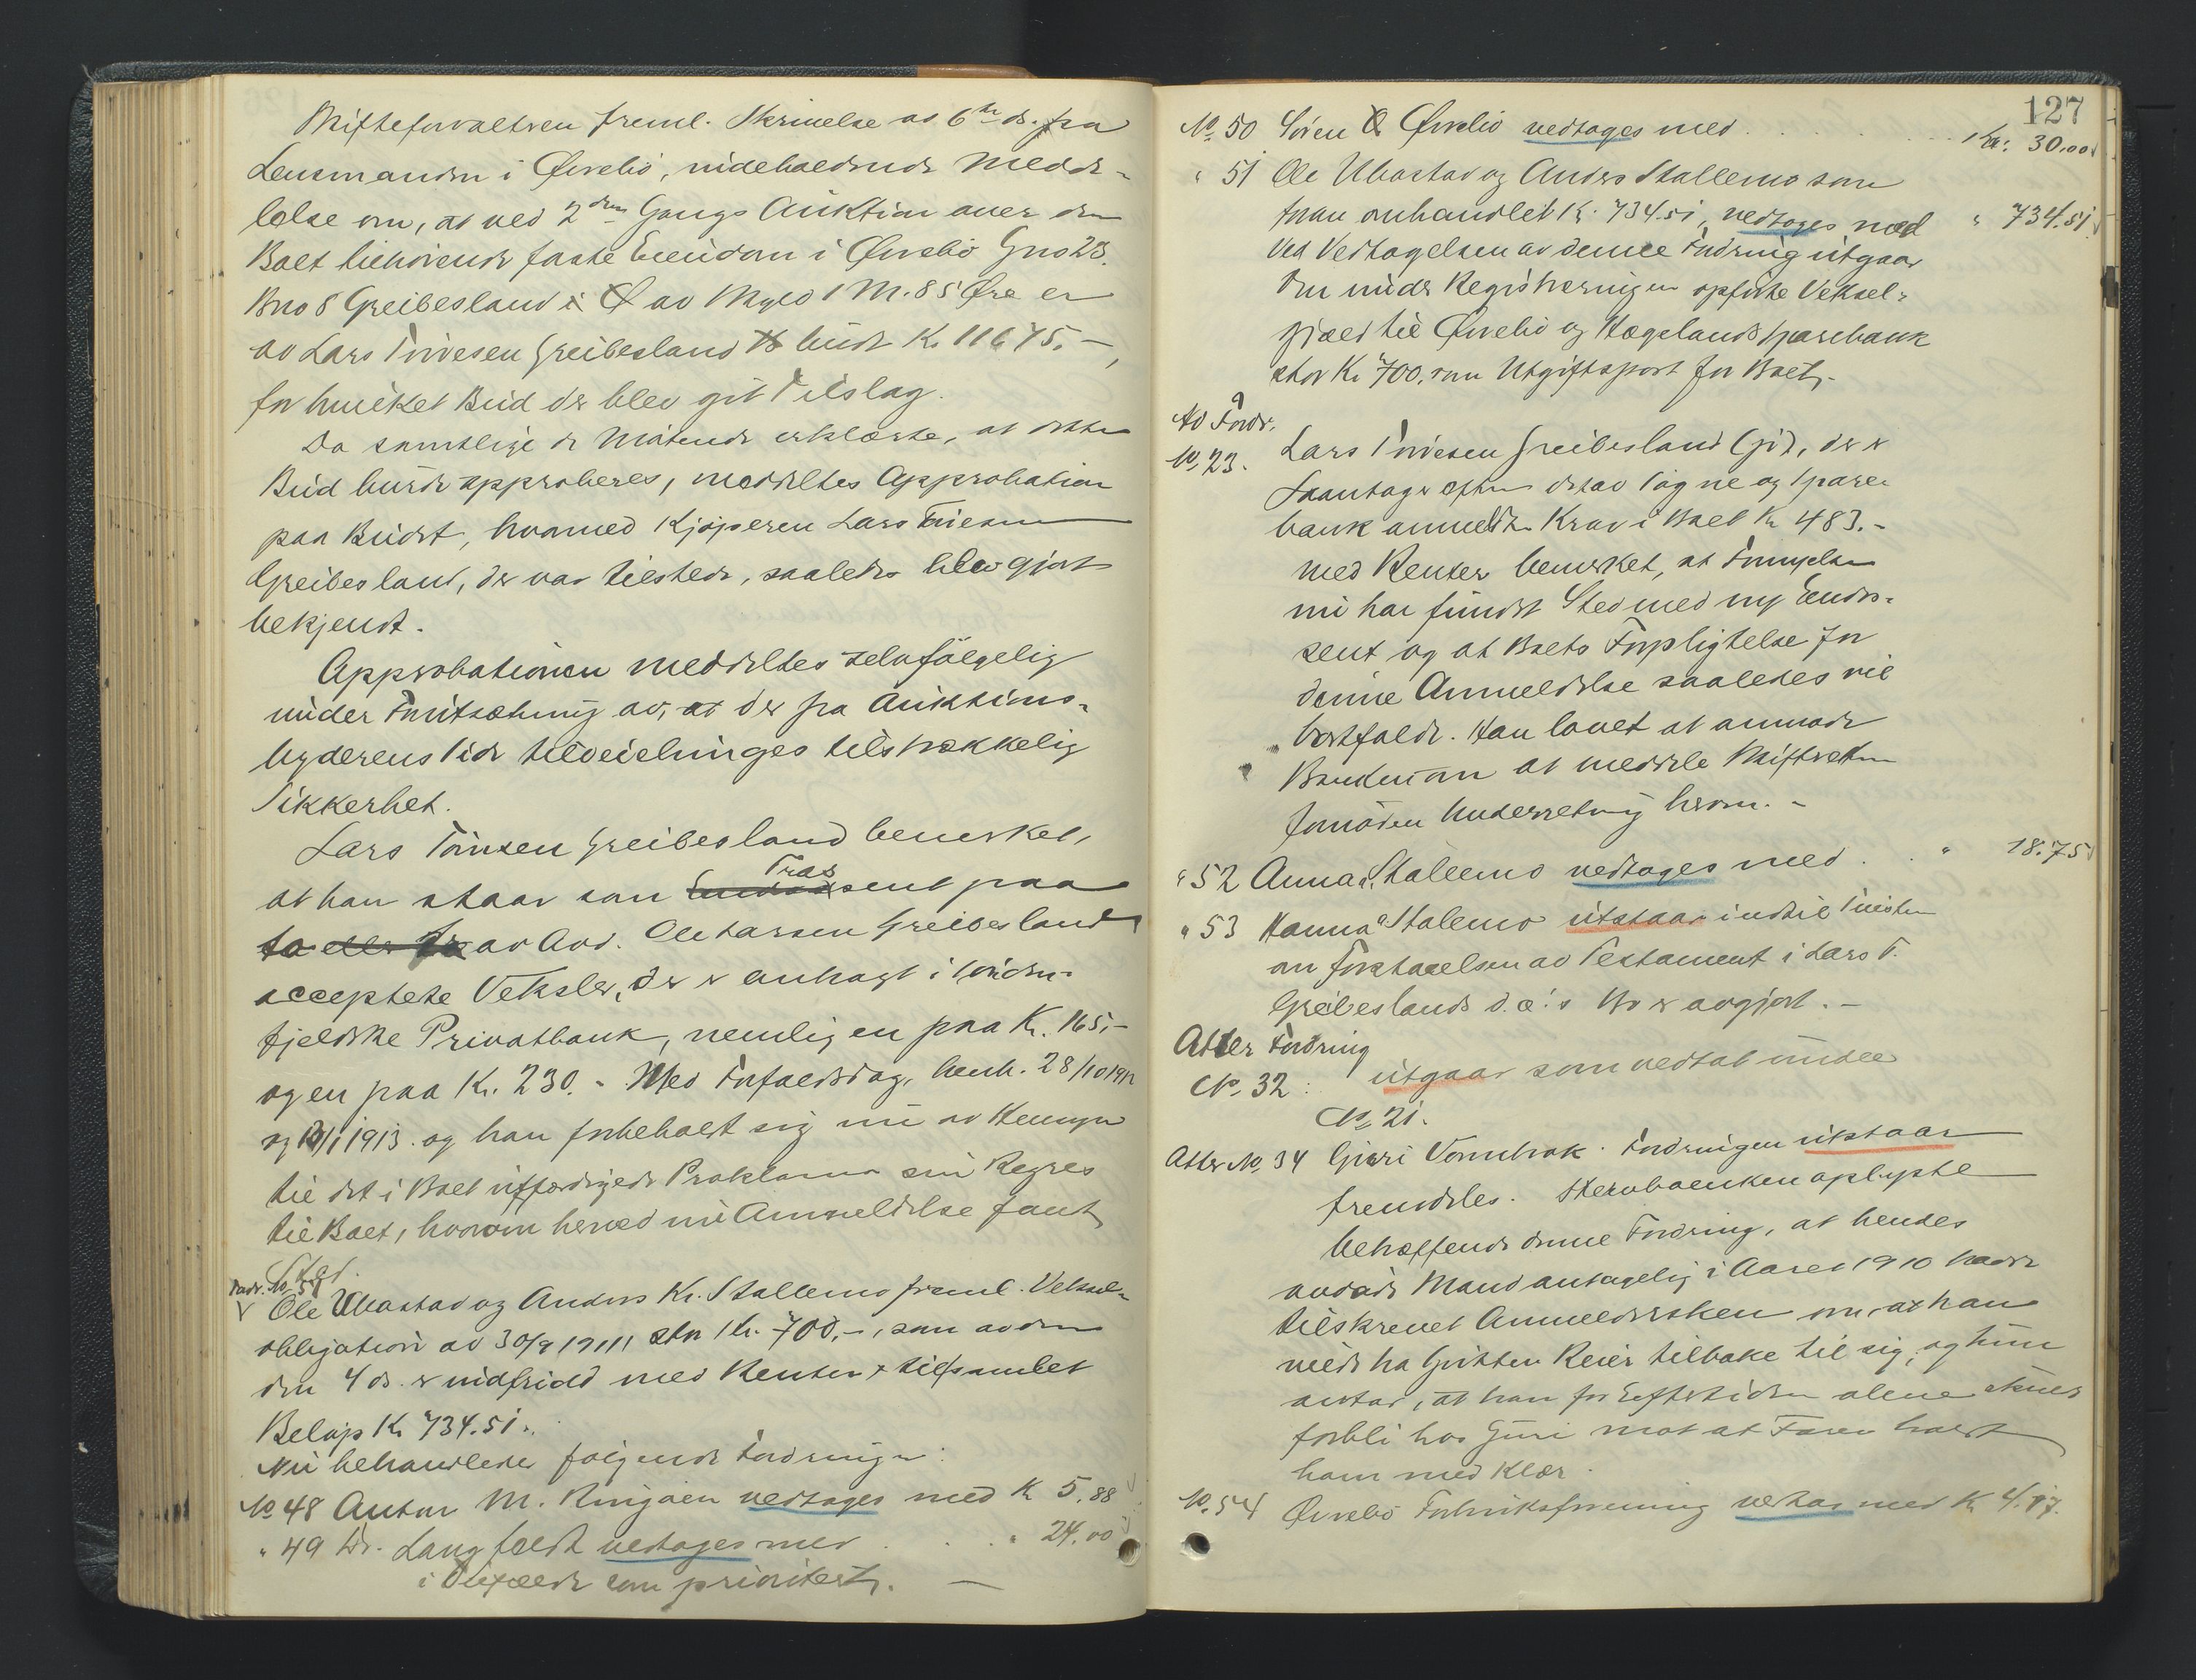 Skifteforvalteren freml. Skrivelse av 6te ds. fra
Lensmanden i Øvrebö, indeholdende Medde-
lelse om, at ved 2den Gangs Auktion over den
Boet tilhörende faste Eiendom i Øvrebö Gno 23.
Bno 8 Greibesland i Ø av Skyld 1 M. 85 Øre er
av Lars Torivesen Greibesland budt Kr. 11675,-,
for hvilket Bud der blev git Tilslag.
Da samtlige de Mötende erklærte, at dette
Bud burde approberes, meddeltes Approbation
paa Budet, hvormed Kjöperen Lars
Greibesland, der var tilstede, saaledes blev gjort
bekjendt.
Approbationen meddeltes selvfölgelig
under Forutsætning av, at der fra Auktions-
byderens Side tilveiebringes tilstrækkelig
Sikkerhet.
Lars Greibesland bemerket,
Tras
at han staar som sent paa
to av Avd. Ole Larsen Greibesland
accepterte Veksler, der er antagt i
fjeldske Privatbank, nemlig en paa Kr. 165,-
og en paa Kr. 230.- Med Forfaldsdag, henh. 28/10 1912
og 13/1 1913. og han forbeholdt sig nu av Hensyn
til det i Boet utfærdigede Proklama sin Regres
til Boet, hvorom herved nu Anmeldelse fandt
Sted.
Fordr. No 51
Ole Ubostad og Anders Kr. Stallemo freml. Veksel-
obligation av 30/9 1911 stor Kr. 700,-, som av dem
den 4 ds. er indfridd med Renter tilsamlet
Belöp Kr 734.51.
Nu behandledes fölgende Fordringer:
No 48 Anton M. Ringaen vedtages med Kr 5.88
" 49 Dr. Langfeldt vedtages med . . . " 24.00
i Tilfælde som prioritert. —
127
No. 50 Sören Ø Øvrebö vedtages med . . . . Kr. 30.00
" 51 Ole Ubostad og Anders Stallemo som
foran omhandlet Kr. 734.51, vedtages med " 734.51
Ved Vedtagelsen av denne Fordring utgaar
den under Registreringen opförte Veksel-
gjæld til Øvrebö og Hægelands Sparebank
stor Kr. 700. som Utgiftspost for Boet.
Ad Fordr.
No 23. Lars Greibesland Gjd, der er
Laantager efter det av Sögne og Spare-
bank anmeldte Krav i Boet Kr 483.-
med Renter bemerket, at Fornyelsen
nu har fundet Sted med ny Endos-
sent og at Boets Forpligtelse for
denne Anmeldelse saaledes vil
bortfalde. Han lovet at anmode
Banken om at meddele Skifteretten
fornöden Underretning herom. -
" 52 Anna Stallemo vedtages med . . " 18.75
" 53 Hanna Stalemo utstaar indtil Tvisten
om Forstaaelsen av Testament i Lars T.
Greibeslands d. æ.'s Bo er avgjort. -
Atter Fordring
No. 32: utgaar som vedtat under
No. 21.
Atter No. 34 Guri Vornbrok. Fordringen utstaar
fremdeles. Stervboenken oplyste
betræffende denne Fordring, at hendes
avdöde Mand antagelig i Aaret 1910 hadde
tilskrevet Anmeldersken om, at han
vilde ha Gutten Reier tilbake til sig, og hun
antar, at han for Eftertiden alene skulde
forbli hos Guri mot at Faren holdt
ham med Klær.
No. 54 Øvrebö Forbruksforening vedtas med Kr 4.97.